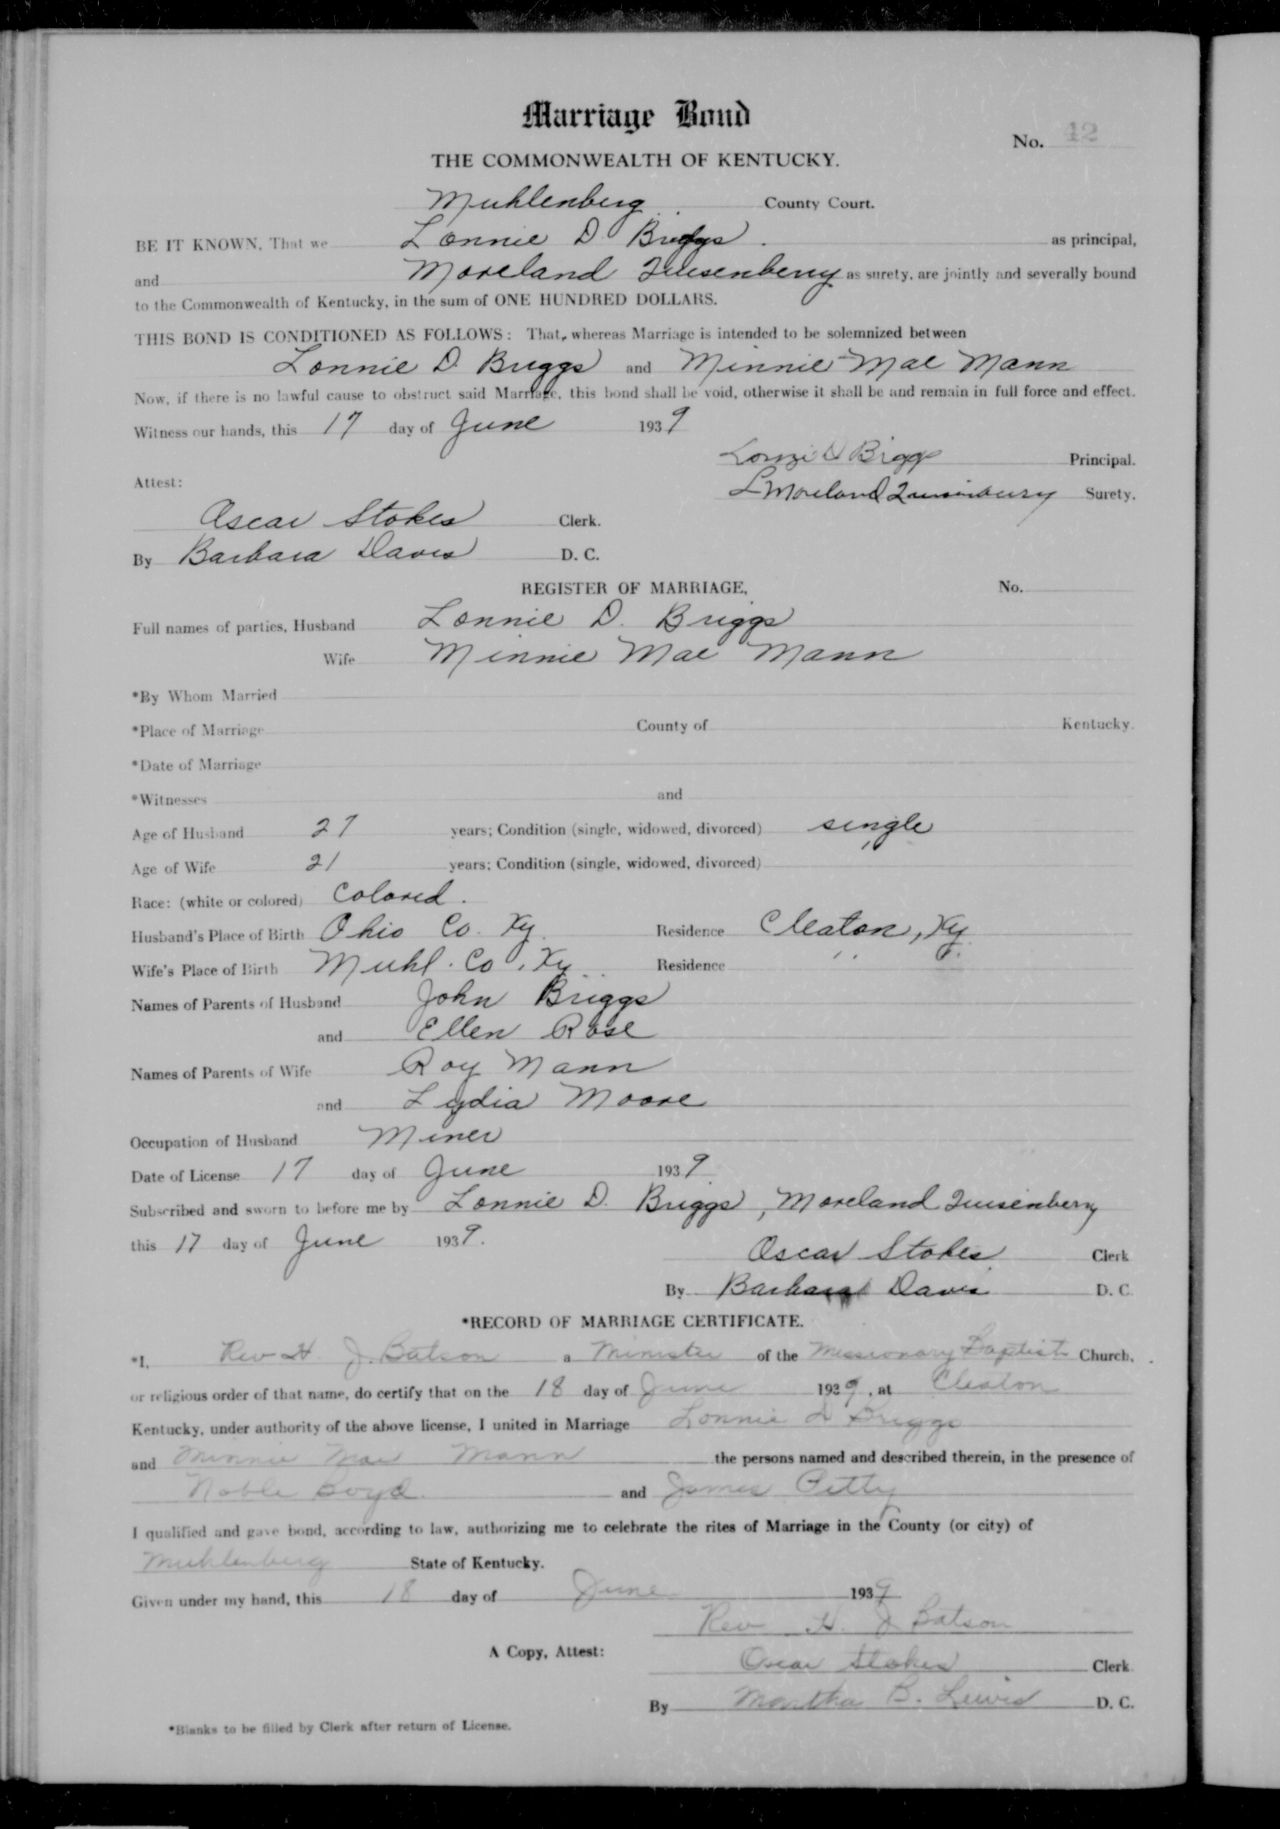 Marriage Bond
No. 42
THE COMMONWEALTH OF KENTUCKY.
Muhlenberg County Court.
BE IT KNOWN, That we Lonnie D Briggs. as principal,
and Moreland Quisenberry as surety, are jointly and severally bound
to the Commonwealth of Kentucky, in the sum of ONE HUNDRED DOLLARS.
THIS BOND IS CONDITIONED AS FOLLOWS: That, whereas Marriage is intended to be solemnized between
Lonnie D. Briggs and Minnie Mae Mann
Now, if there is no lawful cause to obstruct said Marriage, this bond shall be void, otherwise it shall be and remain in full force and effect.
Witness our hands, this 17 day of June 1939
D Briggs Principal.
Attest: L Moreland Surety.
Oscar Stokes Clerk.
By Barbara Davis D. C.
REGISTER OF MARRIAGE, No.
Full names of parties, Husband Lonnie D. Briggs
Wife Minnie Mae Mann
*By Whom Married
*Place of Marriage County of Kentucky.
*Date of Marriage
*Witnesses and
Age of Husband 27 years; Condition (single, widowed, divorced) single
Age of Wife 21 years; Condition (single, widowed, divorced) "
Race: (white or colored) Colored.
Husband's Place of Birth Ohio Co. Ky. Residence Cleaton, Ky.
Wife's Place of Birth Muhl. Co., Ky. Residence " "
Names of Parents of Husband John Briggs
and Ellen Rose
Names of Parents of Wife Roy Mann
and Lydia Moore
Occupation of Husband Miner
Date of License 17 day of June 1939
Subscribed and sworn to before me by Lonnie D. Briggs, Moreland Quisenberry
this 17 day of June 1939.
Oscar Stokes Clerk
By Barbara Davis D. C.
*RECORD OF MARRIAGE CERTIFICATE.
*I, Rev H. J. Batson a Minister of the Missionary Baptist Church,
or religious order of that name, do certify that on the 18 day of June 1939, at Cleaton
Kentucky, under authority of the above license, I united in Marriage Lonnie D Briggs
and Minnie Mae Mann the persons named and described therein, in the presence of
Noble Boyd and James Petty
I qualified and gave bond, according to law, authorizing me to celebrate the rites of Marriage in the County (or city) of
Muhlenberg State of Kentucky.
Given under my hand, this 18 day of June 1939
Rev. H. J Batson
A Copy, Attest: Oscar Stokes Clerk
By Martha B. Lewis D. C.
*Blanks to be filled by Clerk after return of License.